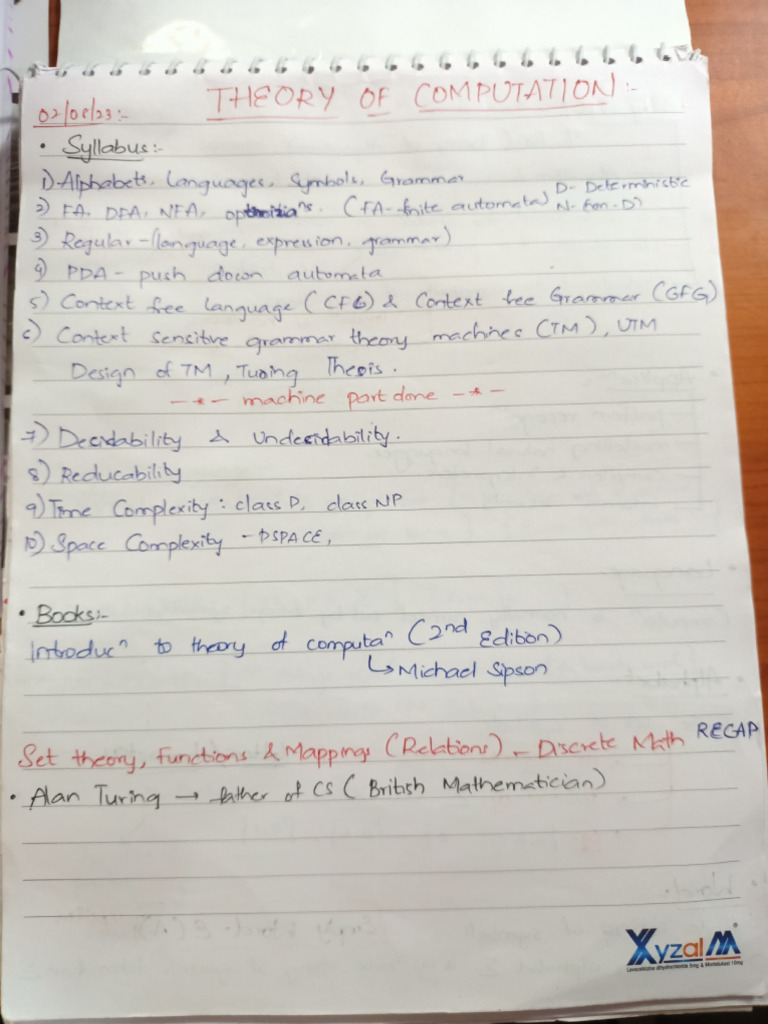 THEORY OF COMPUTATION:-
02/08/23:-
• Syllabus:-
1) Alphabets, Languages, Symbols, Grammar
2) FA, DFA, NFA, (FA-finite automata) D- Deterministic
N- Non-D)
3) Regular-(language, expression, grammar)
4) PDA - push down automata
5) Context free Language (CFG) & Context free Grammar (GFG)
6) Context sensitive grammar theory machines (TM), UTM
Design of TM, Turing Thesis.
-*- machine part done -*-
7) Decidability & Undecidability.
8) Reducability
9) Time Complexity : class P, class NP
10) Space Complexity - PSPACE,
• Books:-
Introducⁿ to theory of computaⁿ (2nd Edition)
↳ Michael Sipson
Set theory, functions & Mappings (Relations) - Discrete Math RECAP
• Alan Turing → father of CS (British Mathematician)
Xyzal M
Levocetirizine dihydrochloride 5mg & Montelukast 10mg